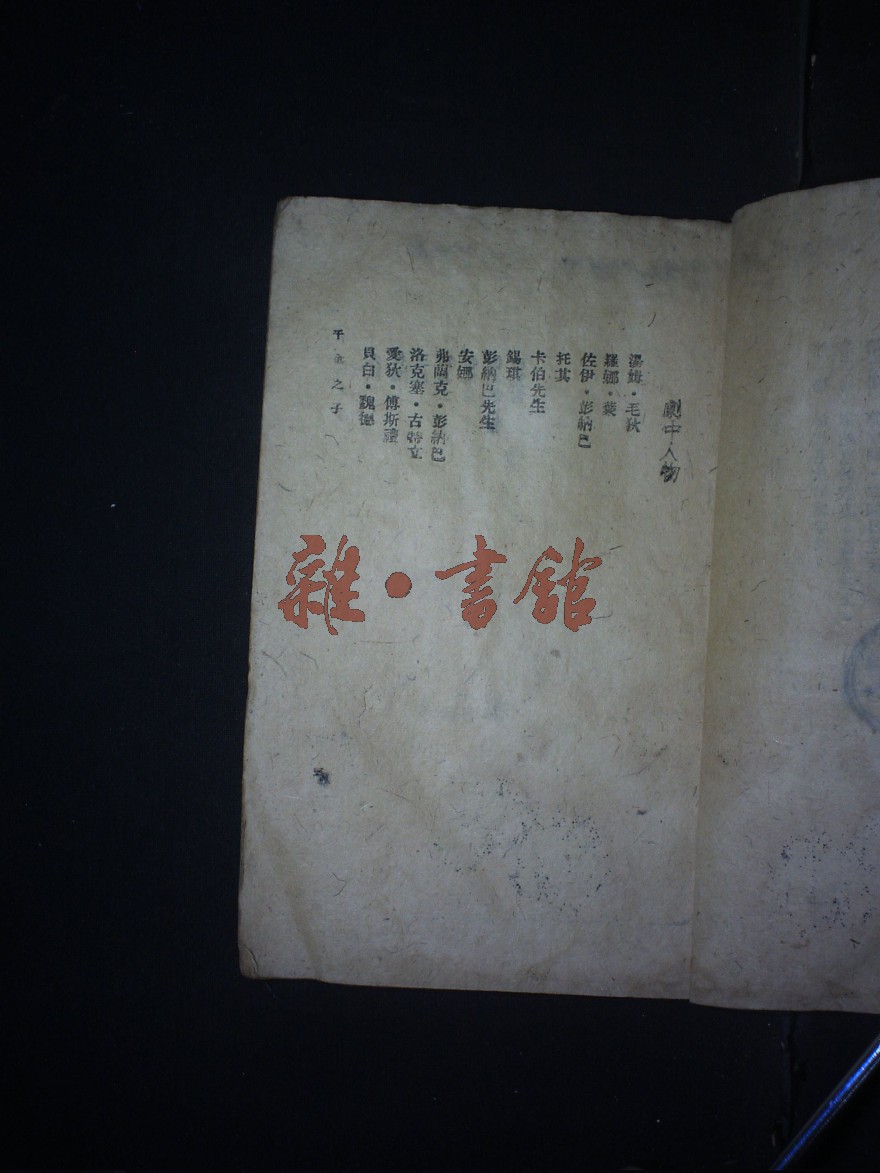 劇中人物
湯姆·毛狄
羅娜·葉
佐伊·彭納巴
托其
卡伯先生
錫琪
彭納巴先生
安娜
弗蘭克·彭納巴
洛克塞·古特立
愛狄·傅斯禮
貝白·魏德
千金之子
雜·書館